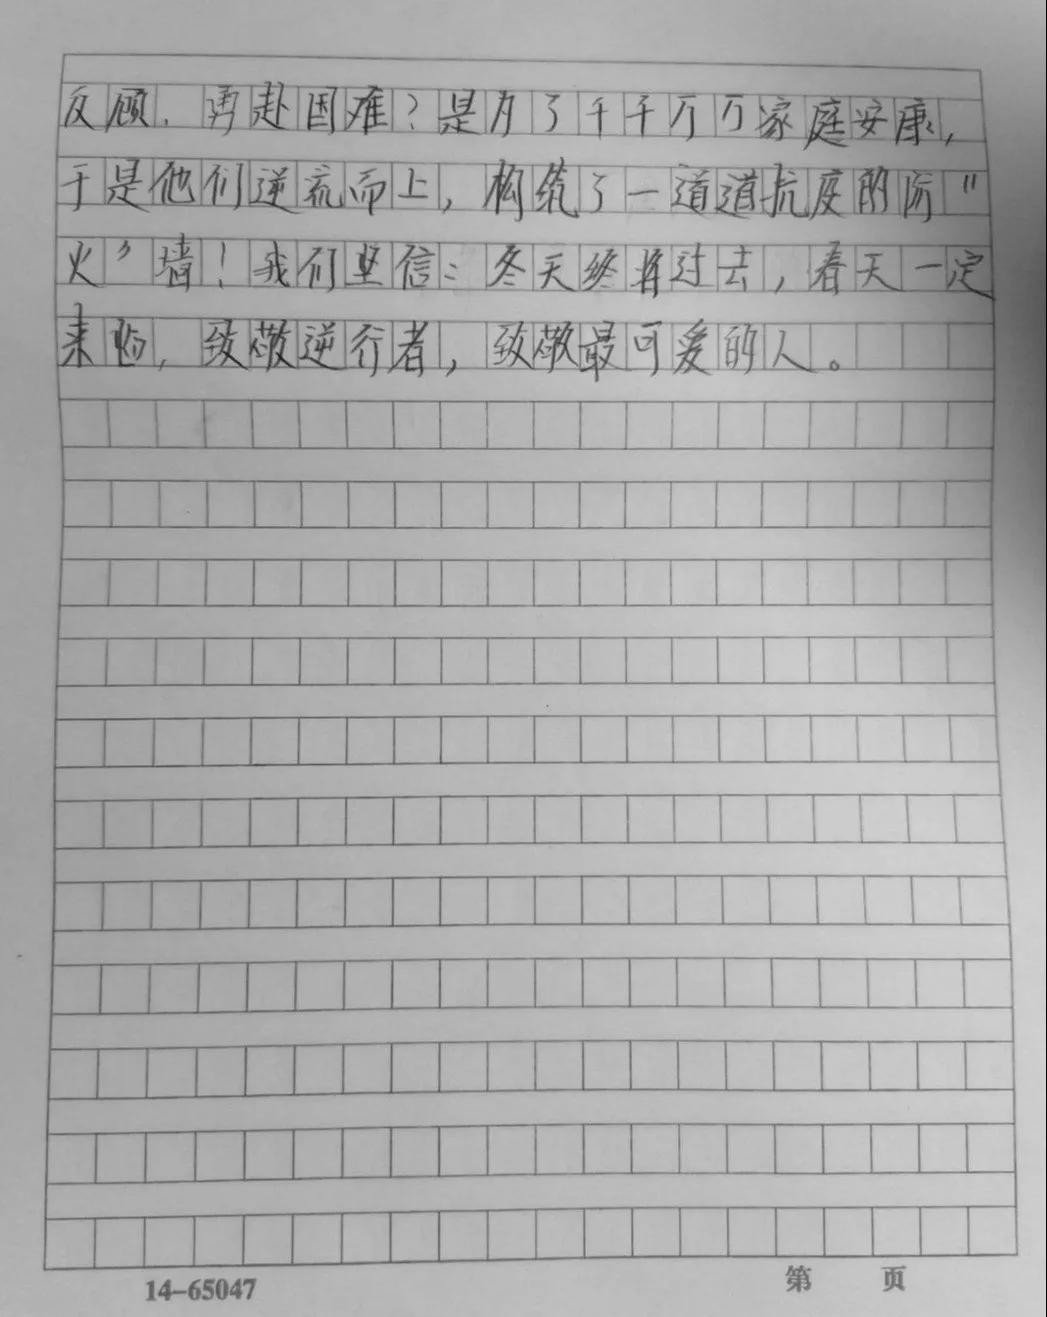 反顾，勇赴国难？是为了千千万万家庭安康，
于是他们逆流而上，构筑了一道道抗疫的防"
火"墙！我们坚信：冬天终将过去，春天一定
来临，致敬逆行者，致敬最可爱的人。
14-65047
第 页